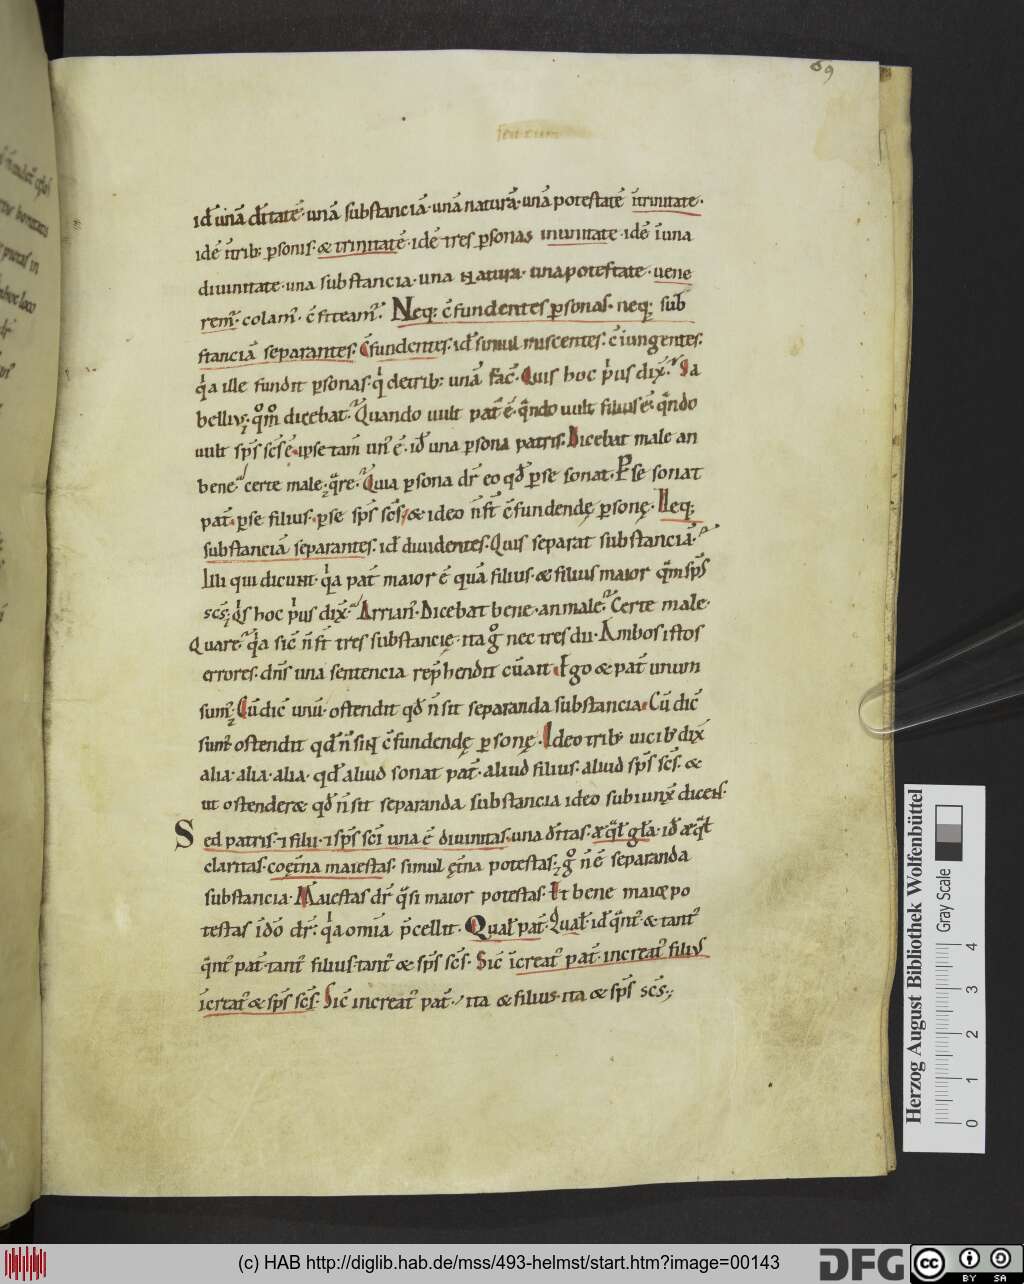 69
id ÷ unā dītatē · unā substanciā · unā naturā · unā potestatē ī trinitate ·
idē ī trib; psonis · & trinitatē · idē tres psonas in unitate · idē ī una
diuinitate · una substancia · una natura · una potestate · uene
rem᷑ · colam᷑ · c̄fiteam᷑ · Neq; c̄fundentes psonas · neq; sub
stanciā separantes · C̄fundentes · id simul miscentes · c̄iungentes ·
q'a ille fundit psonas · q' de trib; unā fac̄ · Quis hoc p'us dix̄ · Sa
bellius; qom̄ dicebat · Quando uult pat̄ ē · qndo uult filius ē · qndo
uult sps̄ scs̄ ē · ipse tam̄ un᷒ ē · id una psona patris · Dicebat male an
bene · certe male; qre · Quia psona dr̄ eo qd p se sonat · P se sonat
pat̄ · p se filius · p se sps̄ scs̄ · & ideo n̄ st̄ c̄fundendę psonę · Neq;
substanciā separantes · id diuidentes · Quis separat substanciā ·
Illi qui dicunt · q'a pat̄ maior ē quā filius · & filius maior qm̄ sps̄
scs̄; Q's hoc p'us dix̄ · Arrian᷒ · Dicebat bene · an male · Certe male ·
Quare · q'a sic̄ n̄ st̄ tres substancię · ita go nec tres dii · Ambos istos
errores · dn̄s una sentencia rep̄hendit cū ait · Ego & pat̄ unum
sum᷒; Cū dic̄ unū · ostendit qd n̄ sit separanda substancia · Cū dic̄
sum᷒ ostendit qd n̄ sint c̄fundendę psonę · Ideo trib; uicib; dix̄
alia · alia · alia · qd aliud sonat pat̄ · aliud filius · aliud sps̄ scs̄ · &
ut ostenderet qd n̄ sit separanda substancia ideo subiunx̄ dicens ·
Sed patris · & filii · & sps̄ sc̄i una ē diuinitas · una dītas · ęqlis gla · id ęql
claritas · coęt̄na maiestas · simul ęt̄na potestas; go n̄ ē separanda
substancia · Maiestas dr̄ qsi maior potestas · Et bene maior po
testas idō dr̄ · q'a omīa p̄cellit · Qual pat̄ · Qual id qnt᷒ · & tant᷒
qnt᷒ pat̄ · tant᷒ filius · tant᷒ & sps̄ scs̄ · Sic̄ īcreat᷒ pat̄ · increat᷒ filius
īcreat᷒ & sps̄ scs̄ · Sic̄ increat᷒ pat̄ · ita & filius · ita & sps̄ scs̄ ·;
Herzog August Bibliothek Wolfenbüttel
Gray Scale
0 1 2 3 4
(c) HAB http://diglib.hab.de/mss/493-helmst/start.htm?image=00143
DFG
cc BY SA